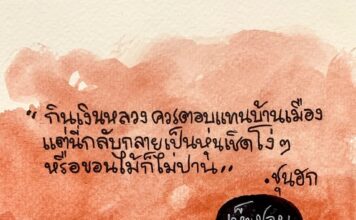 “ กินเงินหลวง ควรตอบแทนบ้านเมือง
แต่นี่กลับกลายเป็นหุ่นเชิดโง่ ๆ
หรือขอนไม้ก็ไม่ปาน ”
. ชุนฮัก